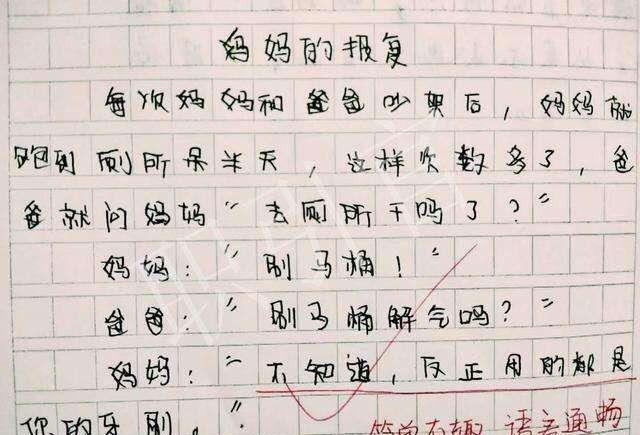 妈妈的报复
每次妈妈和爸爸吵架后，妈妈就
跑到厕所呆半天，这样次数多了，爸
爸就问妈妈“去厕所干吗了？”
妈妈：“刷马桶！“
爸爸：“刷马桶解气吗？”
妈妈：“不知道，反正用的都是
你的牙刷。”
简单有趣 语言通畅